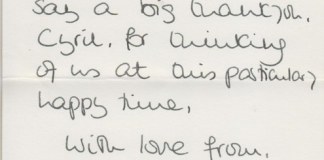 say a big thankyou,
Cyril, for thinking
of us at this particular,
happy time,
With love from,